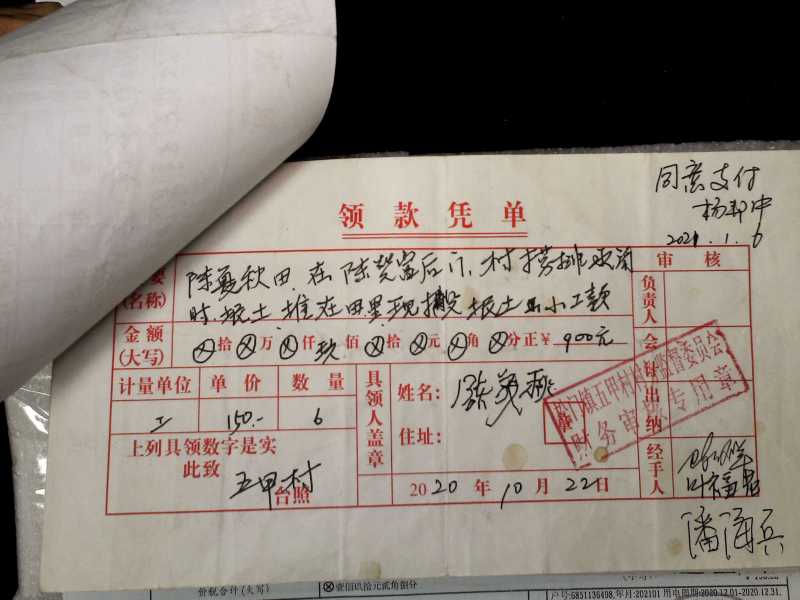 同意支付
2021.1.6
领款凭单
要
(名称)
陈夏秋田,在陈贺富后门,村
时挖土堆在田里现搬挖土小工款
审核
负责人
金额
(大写)
ⓧ拾ⓧ万ⓧ仟玖佰ⓧ拾ⓧ元ⓧ角ⓧ分正¥900元
会计
出纳
计量单位 单价 数量
工 150.- 6
具领人盖章
姓名:
住址:
五甲村村务监督委员会
财务审核专用章
上列具领数字是实
此致
五甲村
台照
2020年10月22日
经手人
潘海兵
价税合计(大写)
ⓧ壹佰玖拾元贰角捌分
户号:6851136498,年月:202101 用电周期:2020.12.01-2020.12.31,